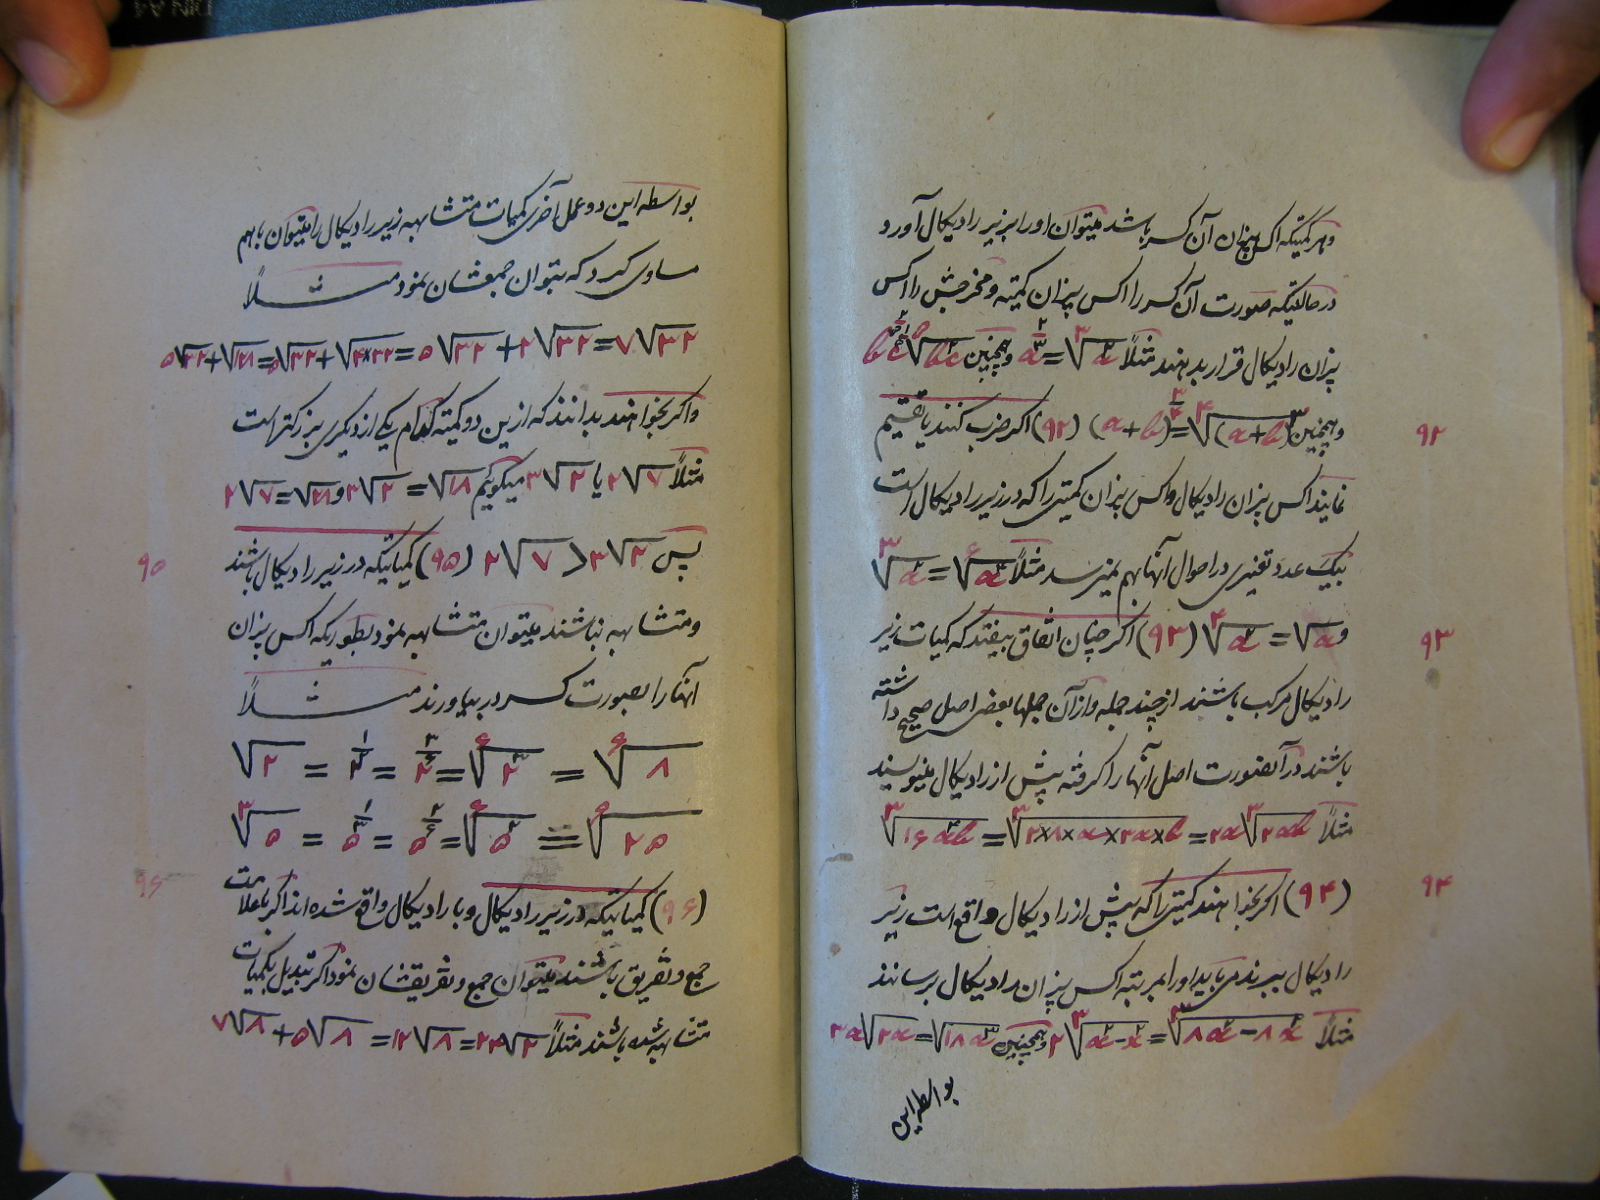 و هر کمیتیکه اکس پزان آن کسر باشد میتوان او را بزیر رادیکال آورد و
در حالتیکه صورت آن کسر را اکس پزان کمیته و مخرجش را اکس
پزان رادیکال قرار بدهند مثلاً ∛a² = a^(۲/۳) و همچنین
و همچنین (a+b)^(۳/۴) = ∜(a+b)³ (۹۲) اکر ضرب کنند یا تقسیم
۹۲
نمایند اکس پزان رادیکال و اکس پزان کمیتی را که در زیر رادیکال است
بیک عدد تغییری در احوال آنها بهم نمیرسد مثلاً
و √a = ∜a² (۹۳) اکر چنان اتفاق بیفتد که کمیات زیر
۹۳
رادیکال مرکب باشند از چند جمله و از آن جملها بعضی اصل صحیح داشته
باشند در آنصورت اصل آنها را کرفته پیش از رادیکال مینویسند
مثلاً ۲a∛۲ab = ∛۲×۸×a×۲a×b = ∛۱۶
(۹۴) اکر بخواهند کمیتی را که پیش از رادیکال واقع است زیر
۹۴
رادیکال ببرند می باید او را بمرتبه اکس پزان رادیکال برسانند
مثلاً و همچنین ۳a√۲a = √۱۸a³
بواسطه این
بواسطه این دو عمل آخری کمیات متشابهه زیر رادیکال را میتوان باهم
مساوی کرد که بتوان جمعشان نمود مثلاً
۵√۳۲+√۱۲۸=۵√۳۲+√۴×۳۲=۵√۳۲+۲√۳۲=۷√۳۲
و اکر بخواهند بدانند که ازین دو کمیته کدام یکی از دیکری بزرکتر است
مثلاً ۲√۷ یا ۳√۲ میکوئیم ۳√۲ = √۱۸ و ۲√۷ = √۲۸
پس ۲√۷ > ۳√۲ (۹۵) کمیاتیکه در زیر رادیکال باشند
۹۵
و متشابهه نباشند میتوان متشابهه نمود بطوریکه اکس پزان
آنها را بصورت کسر در بیاورند مثلاً
√۲ = ۲^(۱/۲) = ۲^(۳/۶) = ⁶√۲³ = ⁶√۸
∛۵ = ۵^(۱/۳) = ۵^(۲/۶) = ⁶√۵² = ⁶√۲۵
(۹۶) کمیاتیکه در زیر رادیکال و با رادیکال واقع شده اند اکر با علامت
۹۶
جمع و تفریق باشند میتوان جمع و تفریقشان نمود اکر تبدیل بکمیات
متشابهه شده باشند مثلاً ۷√۸+۵√۸ =۱۲√۸=۲۴√۲